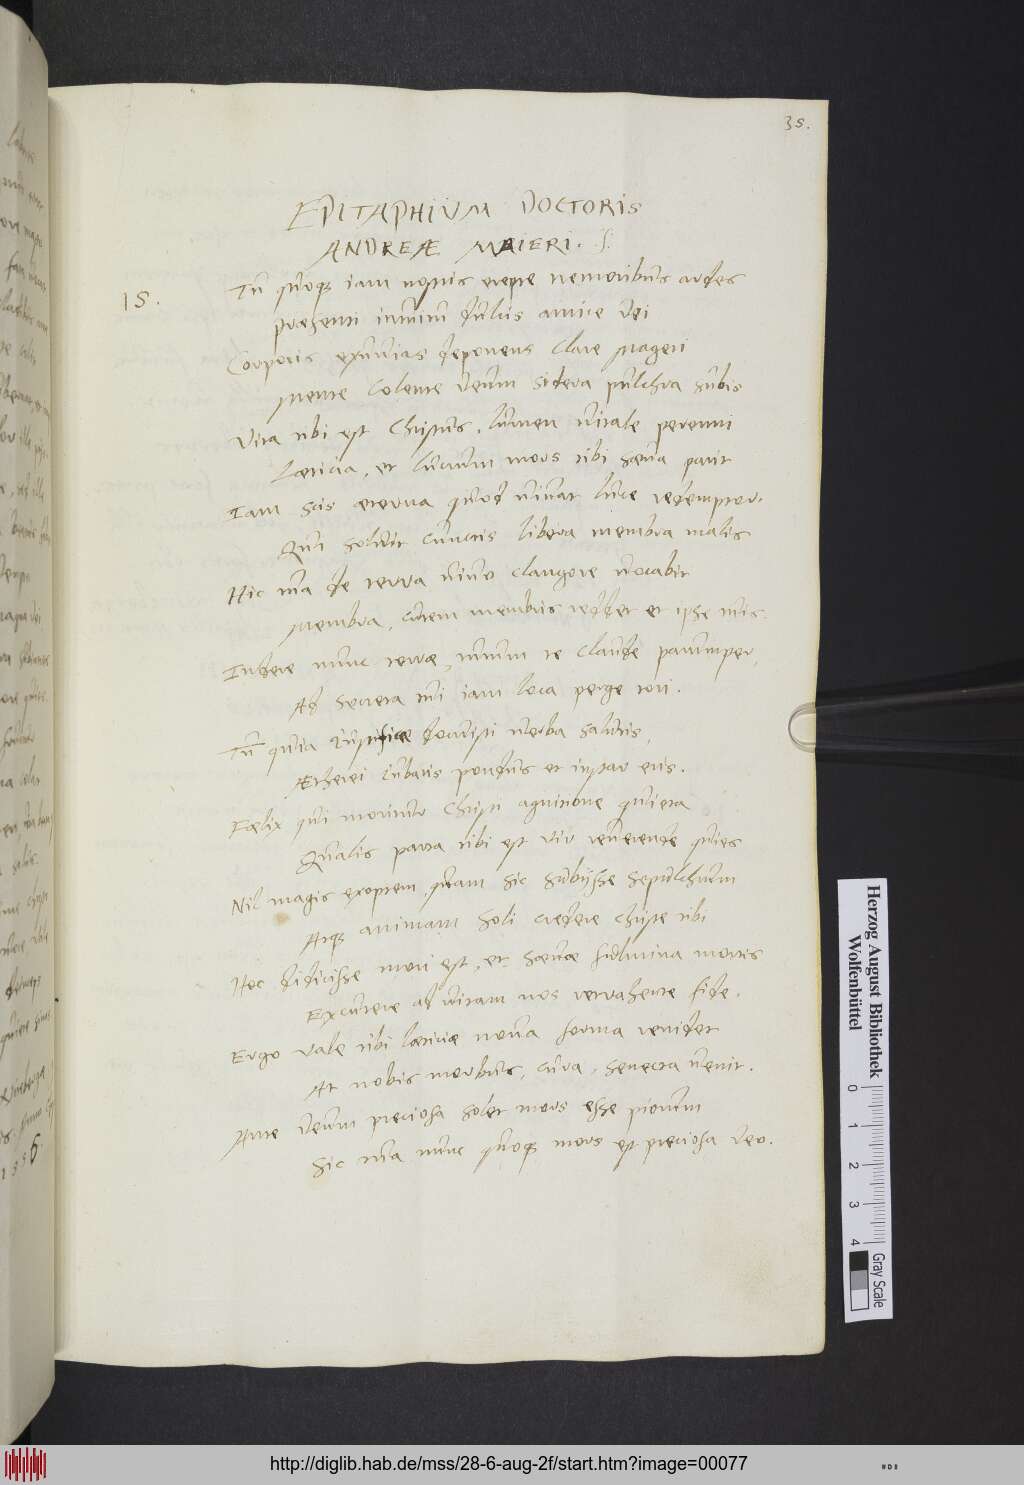 35.
EPITAPHIUM DOCTORIS
ANDREÆ MAIERI.
15.
Tu quoque iam nostris erepte nemoribus ardes
præsenti inmum fulus amice Dei
Corporis exuuias deponens clare Mageri
Mente colente Deum sidera pulchra subis
Vita tibi est Christus, lumen uitale perenni
Lætitia, et lucrum mors tibi sæua parit
Iam scis æterna quod uiuat luce redemptor.
Qui soluit cunctis libera membra malis
Hic tua de terra uiuo clangore uocabit
Membra, cutem membris reddet et ipse tuis.
Indere nunc terræ, tumum te claude parumper,
Ad secreta tui iam loca perge tori.
Tu quia iustificæ docuisti uerba salutis,
Ætherei iubaris pondus et instar eris.
Fœlix qui moritur Christi agnitione quieta
Qualis parta tibi est vir reuerende quies
Nil magis exoptem, quam sic subijsse sepulchrum
Atque animam soli credere Christe tibi
Hoc didicisse mori est, et sæuæ fulmina mortis
Excutere ad uitam nos reuahente fide.
Ergo vale tibi lætitiæ noua forma renidet
At nobis morbus, cura, senecta uenit.
Ante Deum preciosa solet mors esse piorum
Sic tua nunc quoque mors est preciosa Deo.
1556
Herzog August Bibliothek
Wolfenbüttel
0 1 2 3 4
Gray Scale
http://diglib.hab.de/mss/28-6-aug-2f/start.htm?image=00077